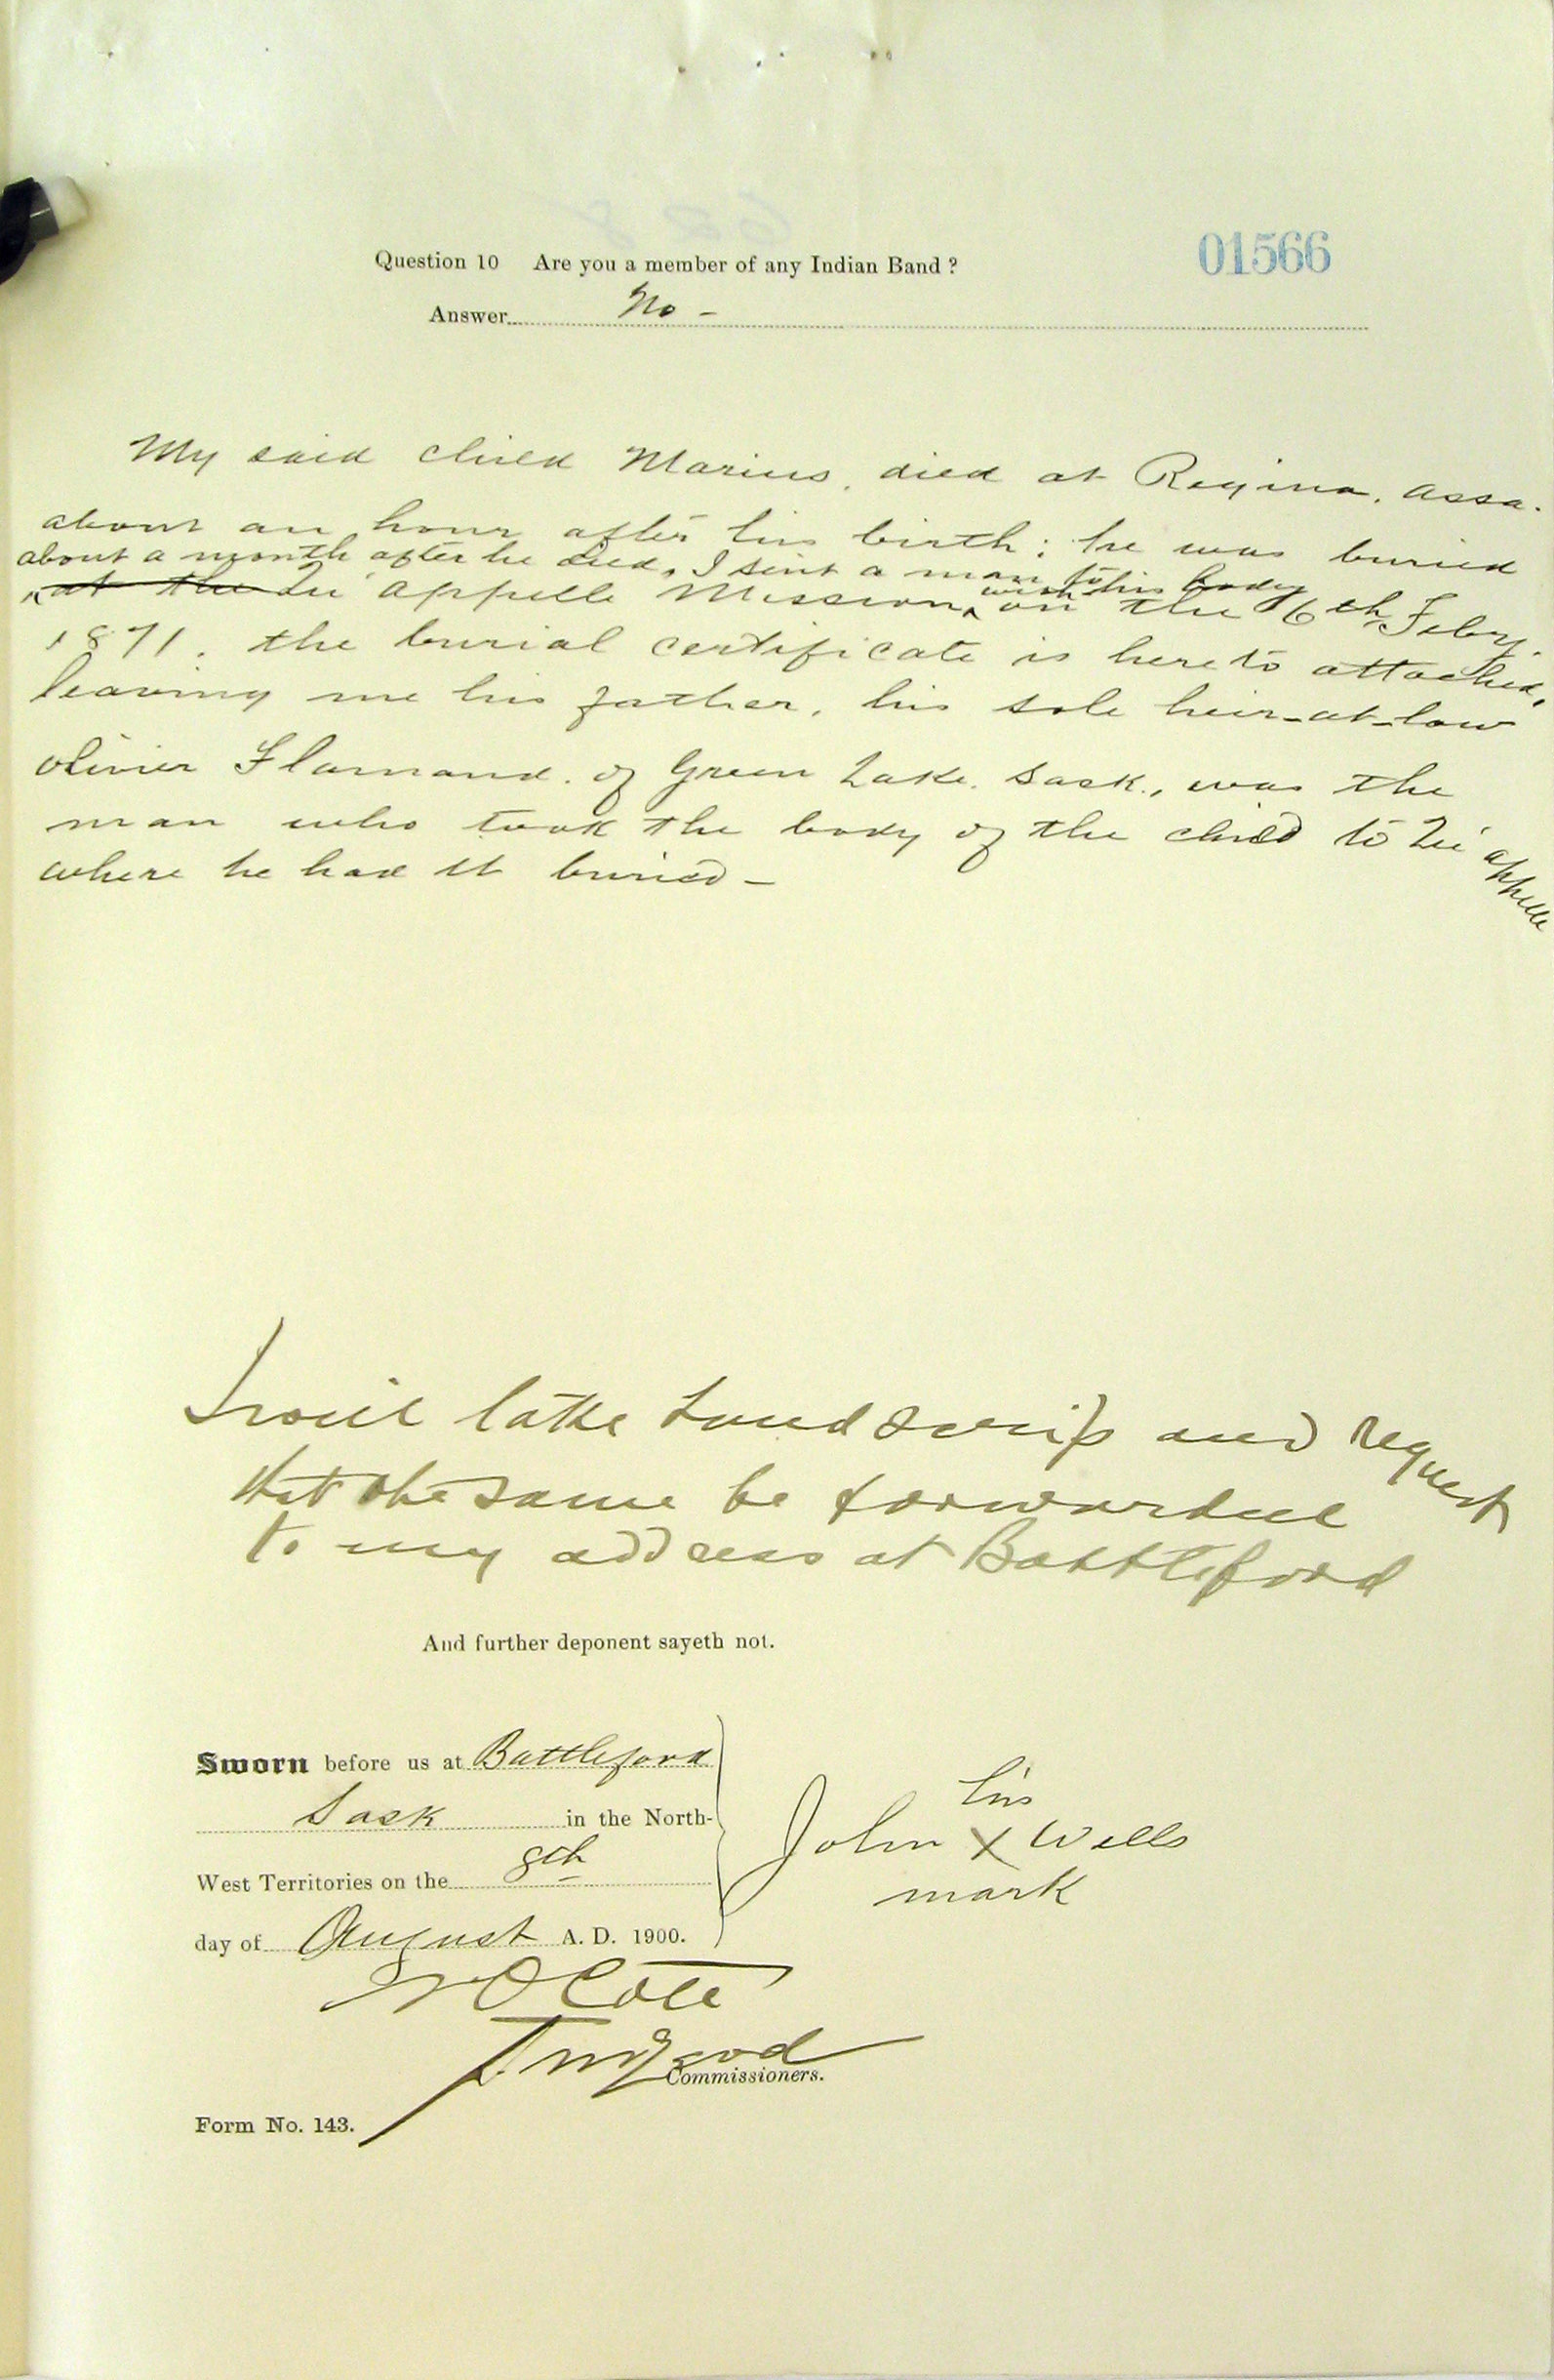 01566
Question 10 Are you a member of any Indian Band ?
Answer No -
My said child Marius, died at Regina, Assa.
about an hour after his birth; he was buried
about a month after he died, I sent a man to
with his body
at the Qu'appelle Mission, on the 6th Feby.
1871. the burial certificate is hereto attached,
leaving me his father, his sole heir-at-law
Olivier Flamand. of Green Lake. Sask., was the
man who took the body of the child to Qu'appelle
where he had it buried -
I will take Land Scrip and request
that the same be forwarded
to my address at Battleford
And further deponent sayeth not.
Sworn before us at Battleford
Sask in the North-
West Territories on the 8th
day of August A. D. 1900.
his
John X Wells
mark
Côté
Commissioners.
Form No. 143.